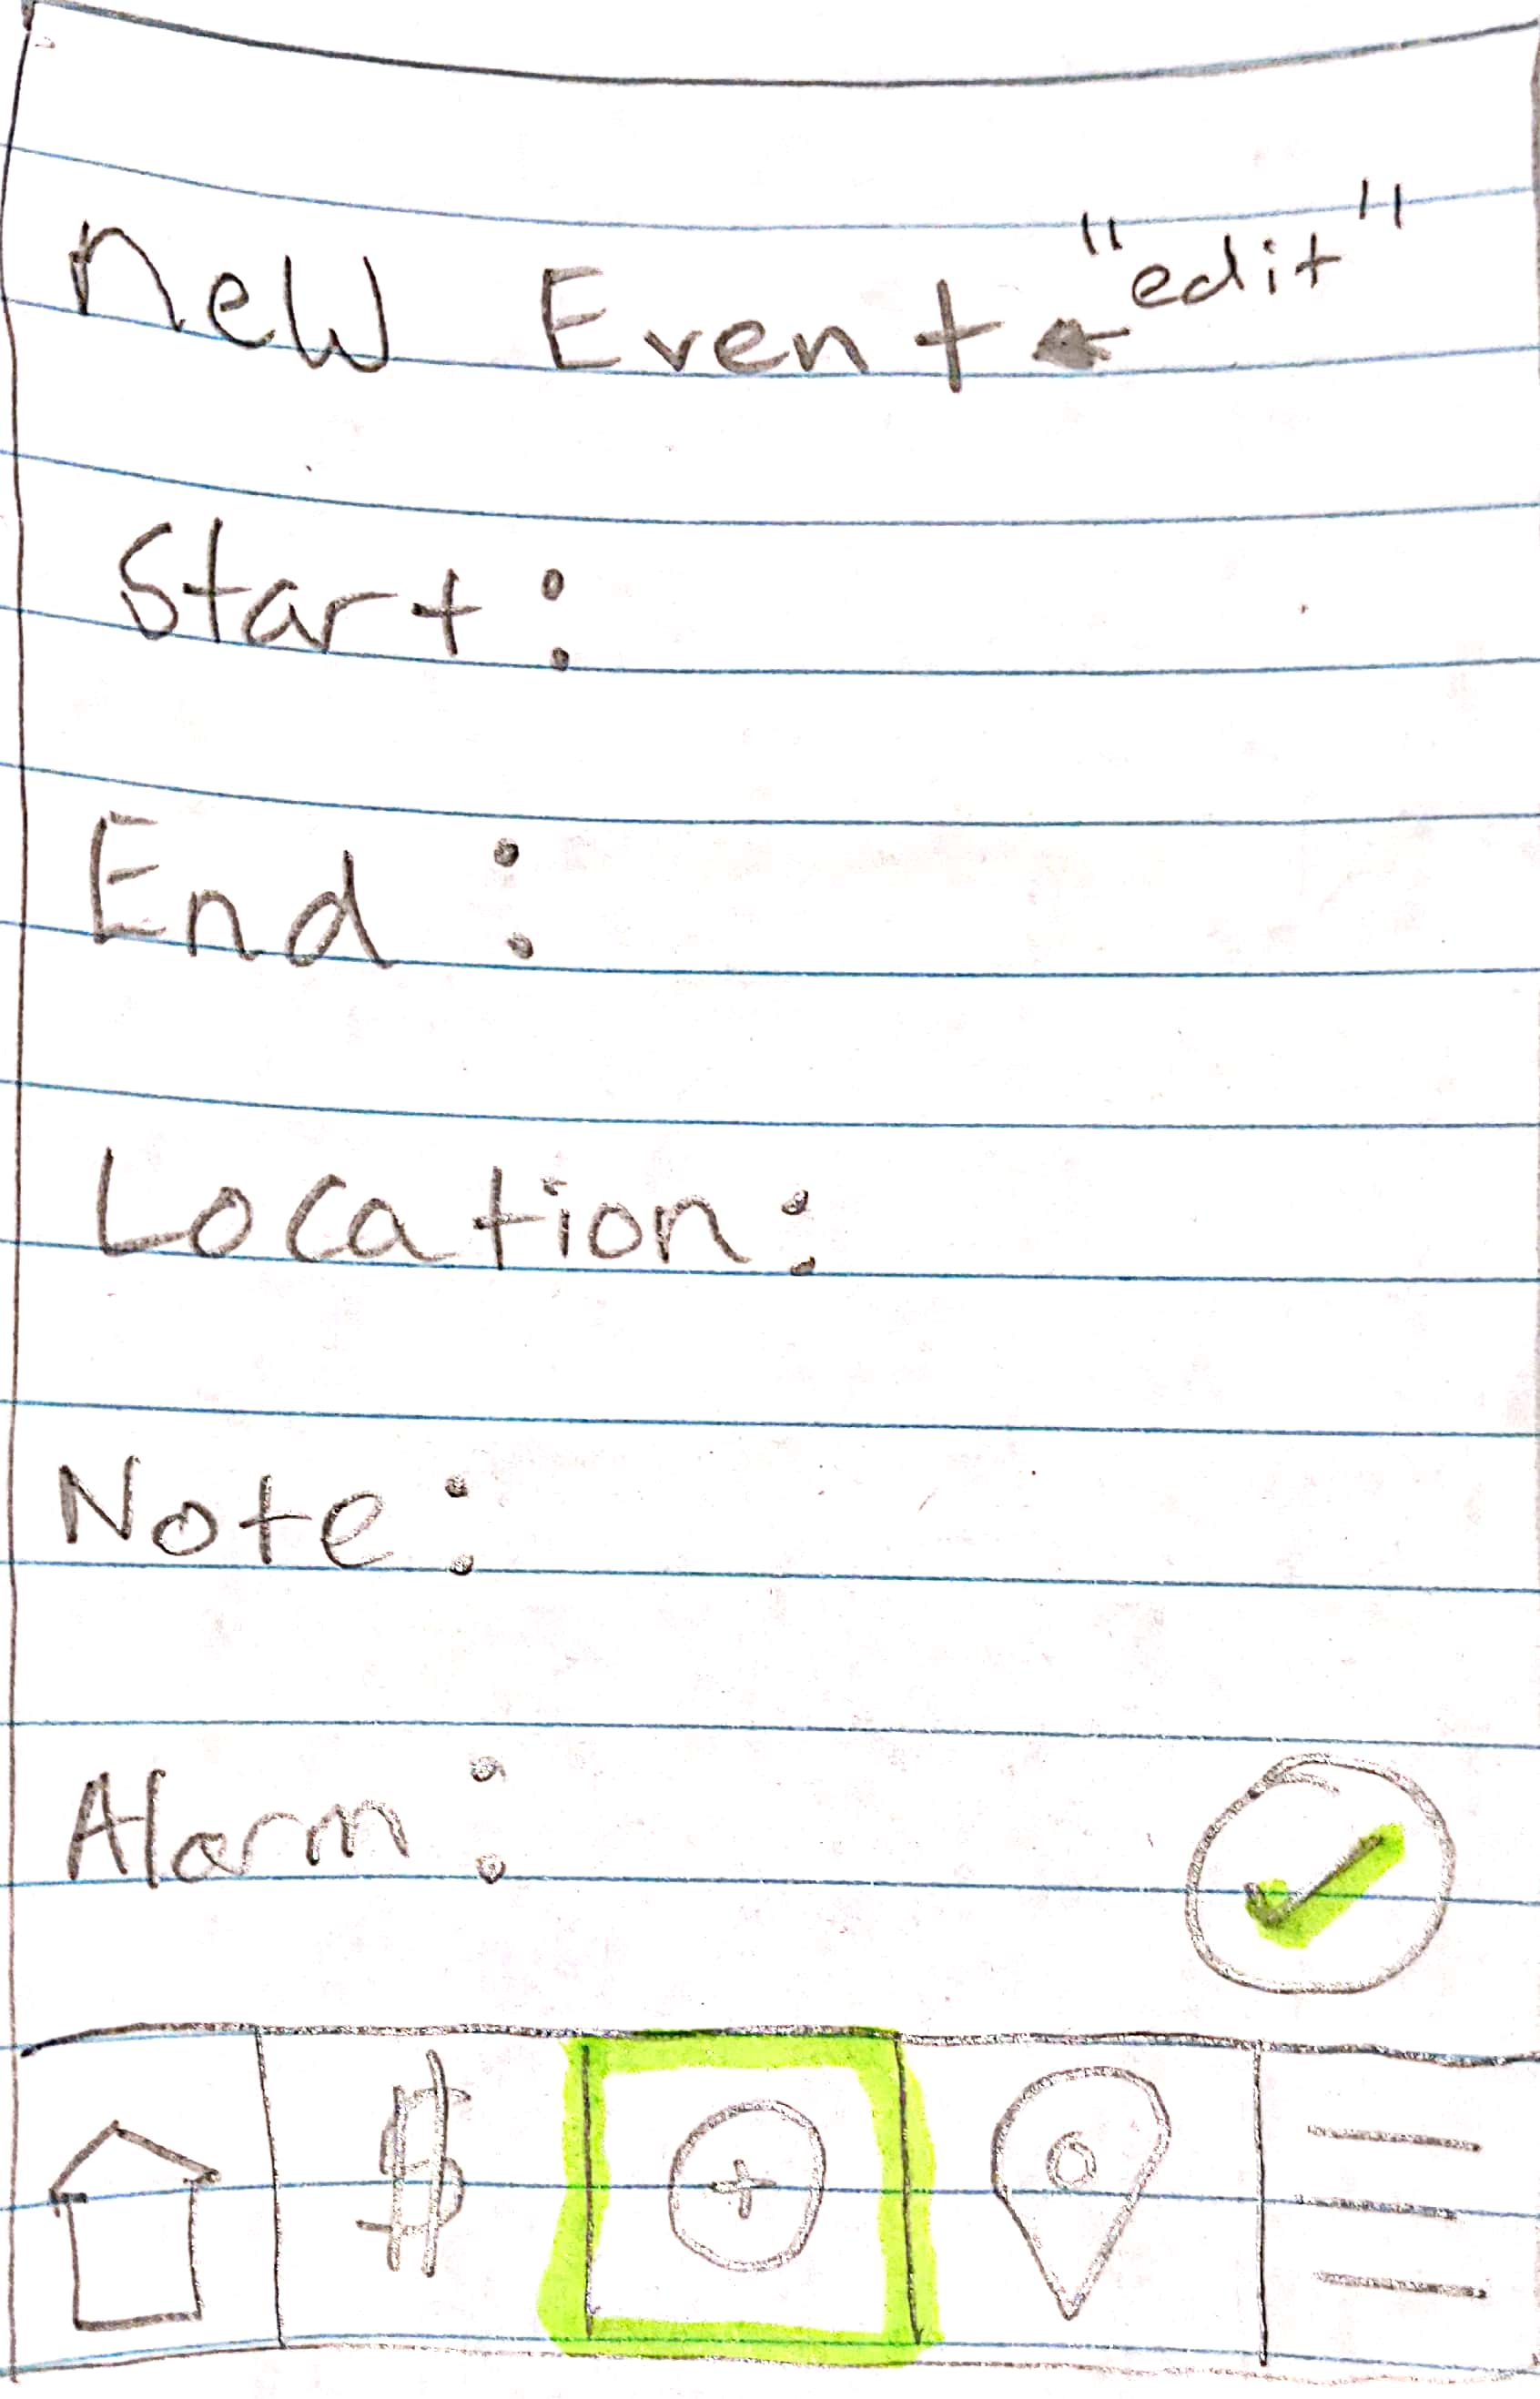 New Event "edit"
Start:
End:
Location:
Note:
Alarm:
$